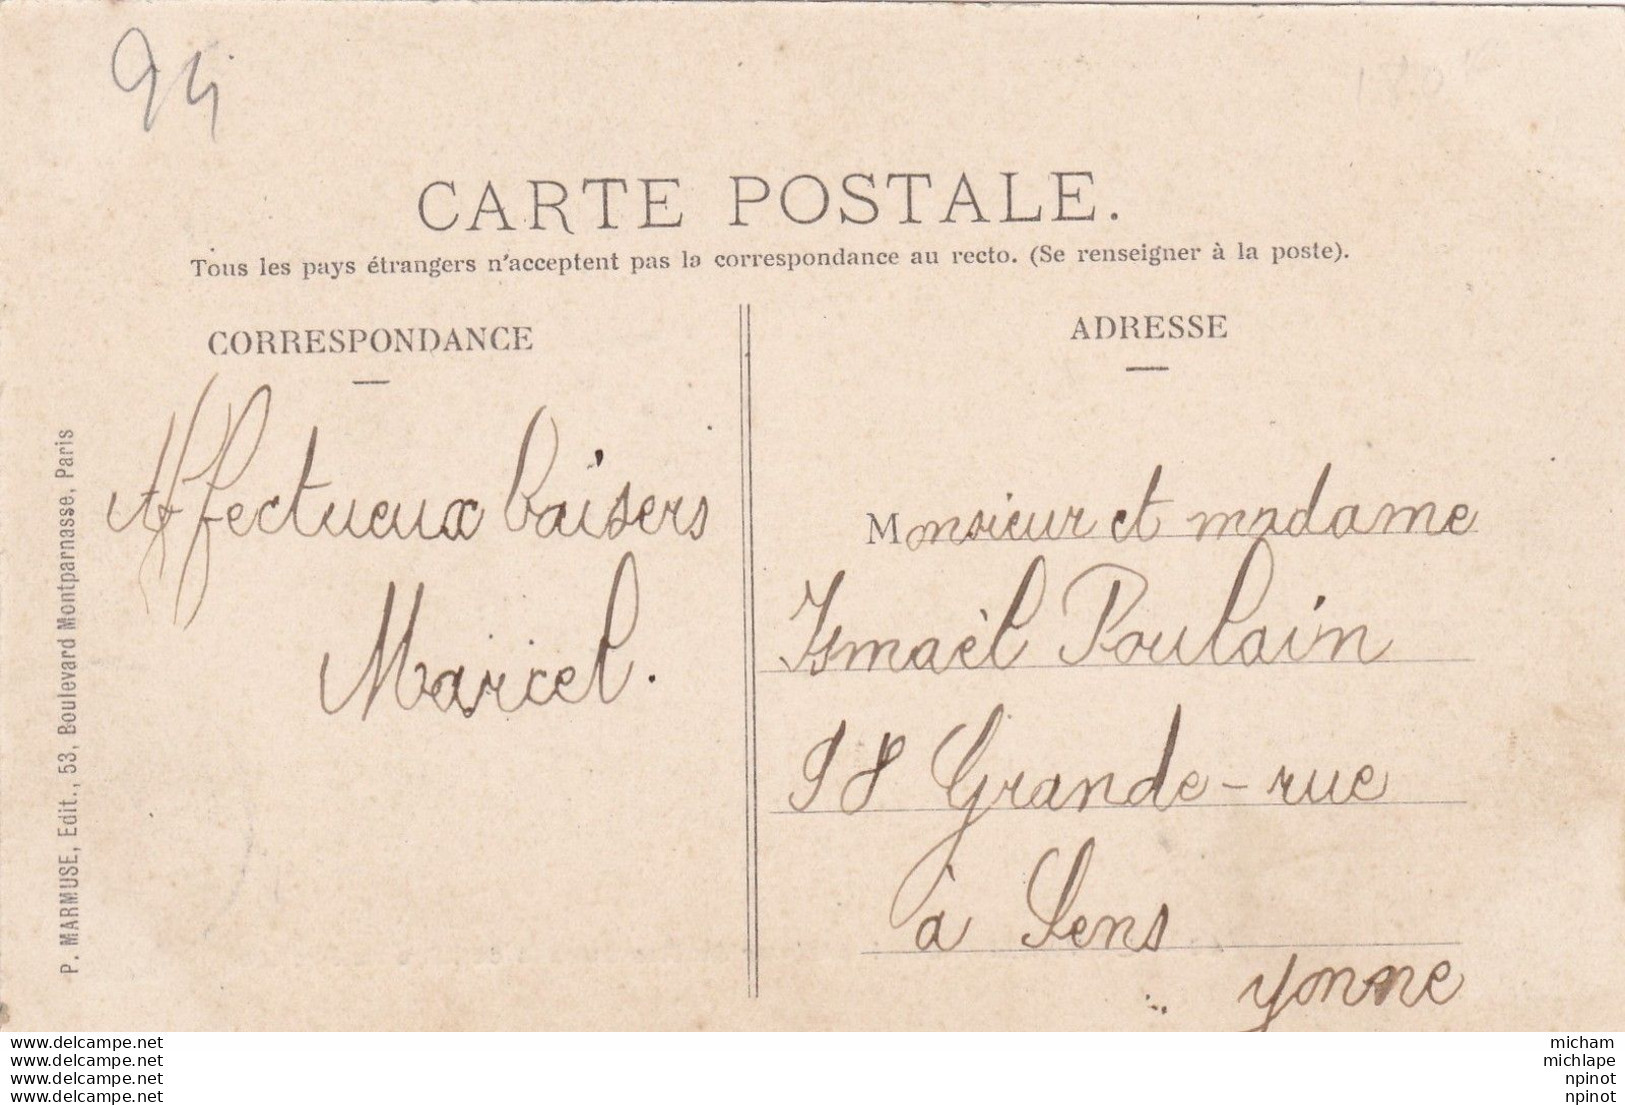 94
CARTE POSTALE.
Tous les pays étrangers n'acceptent pas la correspondance au recto. (Se renseigner à la poste).
CORRESPONDANCE
Affectueux baisers
Marcel.
P. MARMUSE, Edit., 53, Boulevard Montparnasse, Paris
ADRESSE
Monsieur et madame
Ismaèl Poulain
98 Grande-rue
à Sens
Yonne
www.delcampe.net
www.delcampe.net
www.delcampe.net
www.delcampe.net
micham
michlape
npinot
npinot